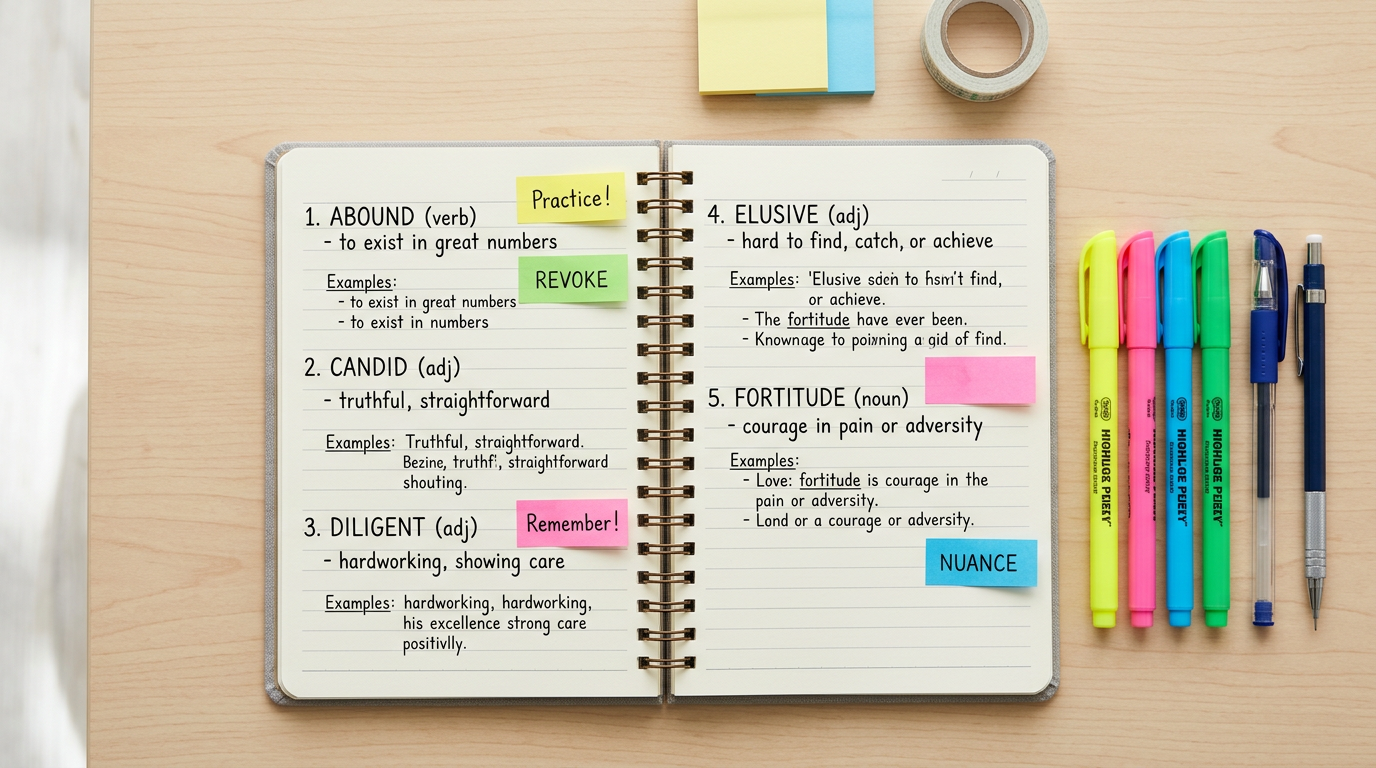 1. ABOUND (verb)
- to exist in great numbers
Practice!
Examples:
- to exist in great numbers
- to exist in numbers
REVOKE
2. CANDID (adj)
- truthful, straightforward
Examples: Truthful, straightforward.
straightforward
shouting.
3. DILIGENT (adj)
- hardworking, showing care
Remember!
Examples: hardworking, hardworking,
his excellence strong care
positivlly.
4. ELUSIVE (adj)
- hard to find, catch, or achieve
Examples: 'Elusive to find,
or achieve.
- The fortitude have ever been.
- Knownage to a of find.
5. FORTITUDE (noun)
- courage in pain or adversity
Examples:
- Love: fortitude is courage in the
pain or adversity.
- Lond or a courage or adversity.
NUANCE